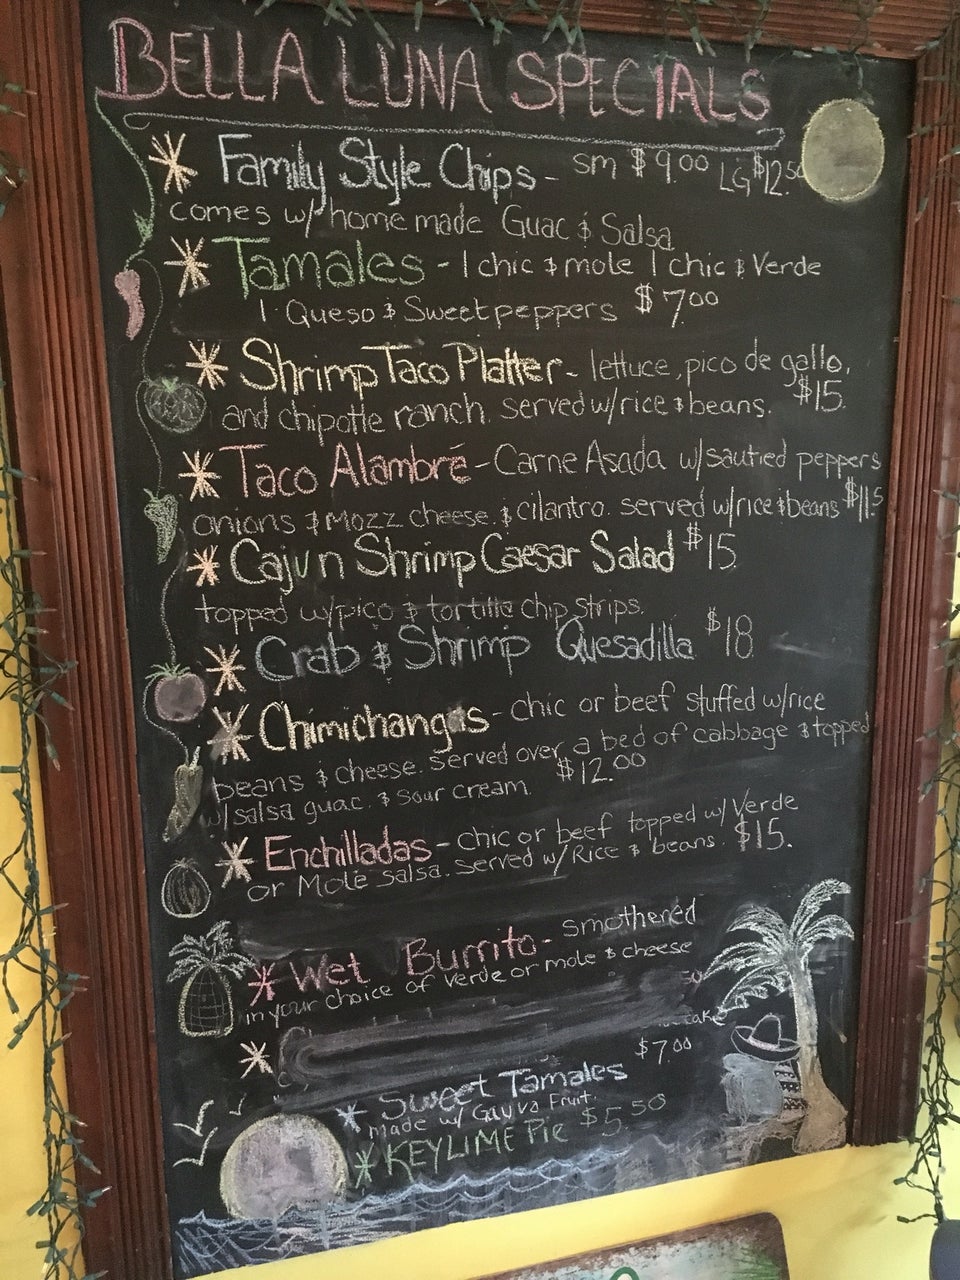 BELLA LUNA SPECIALS
* Family Style Chips - sm $9.00 LG $12.50
comes w/ home made Guac & Salsa
* Tamales - 1 chic & mole 1 chic & Verde
1 Queso & Sweet peppers $7.00
* Shrimp Taco Platter - lettuce, pico de gallo,
and chipotle ranch. served w/rice & beans. $15.
* Taco Alambré - Carne Asada w/sautied peppers
onions & Mozz cheese. & cilantro. served w/rice & beans
* Cajun Shrimp Caesar Salad $15
topped w/pico & tortilla chip strips.
* Crab & Shrimp Quesadilla $18
* Chimichangas - chic or beef stuffed w/rice
beans & cheese. served over a bed of cabbage & topped
w/salsa guac. & sour cream. $12.00
* Enchilladas - chic or beef topped w/ Verde
or Molé salsa. served w/Rice & beans. $15.
* Wet Burrito - smothered
in your choice of verde or mole & cheese
*
$7.00
* Sweet Tamales
made w/ Gauva Fruit.
* KEY LIME Pie $5.50